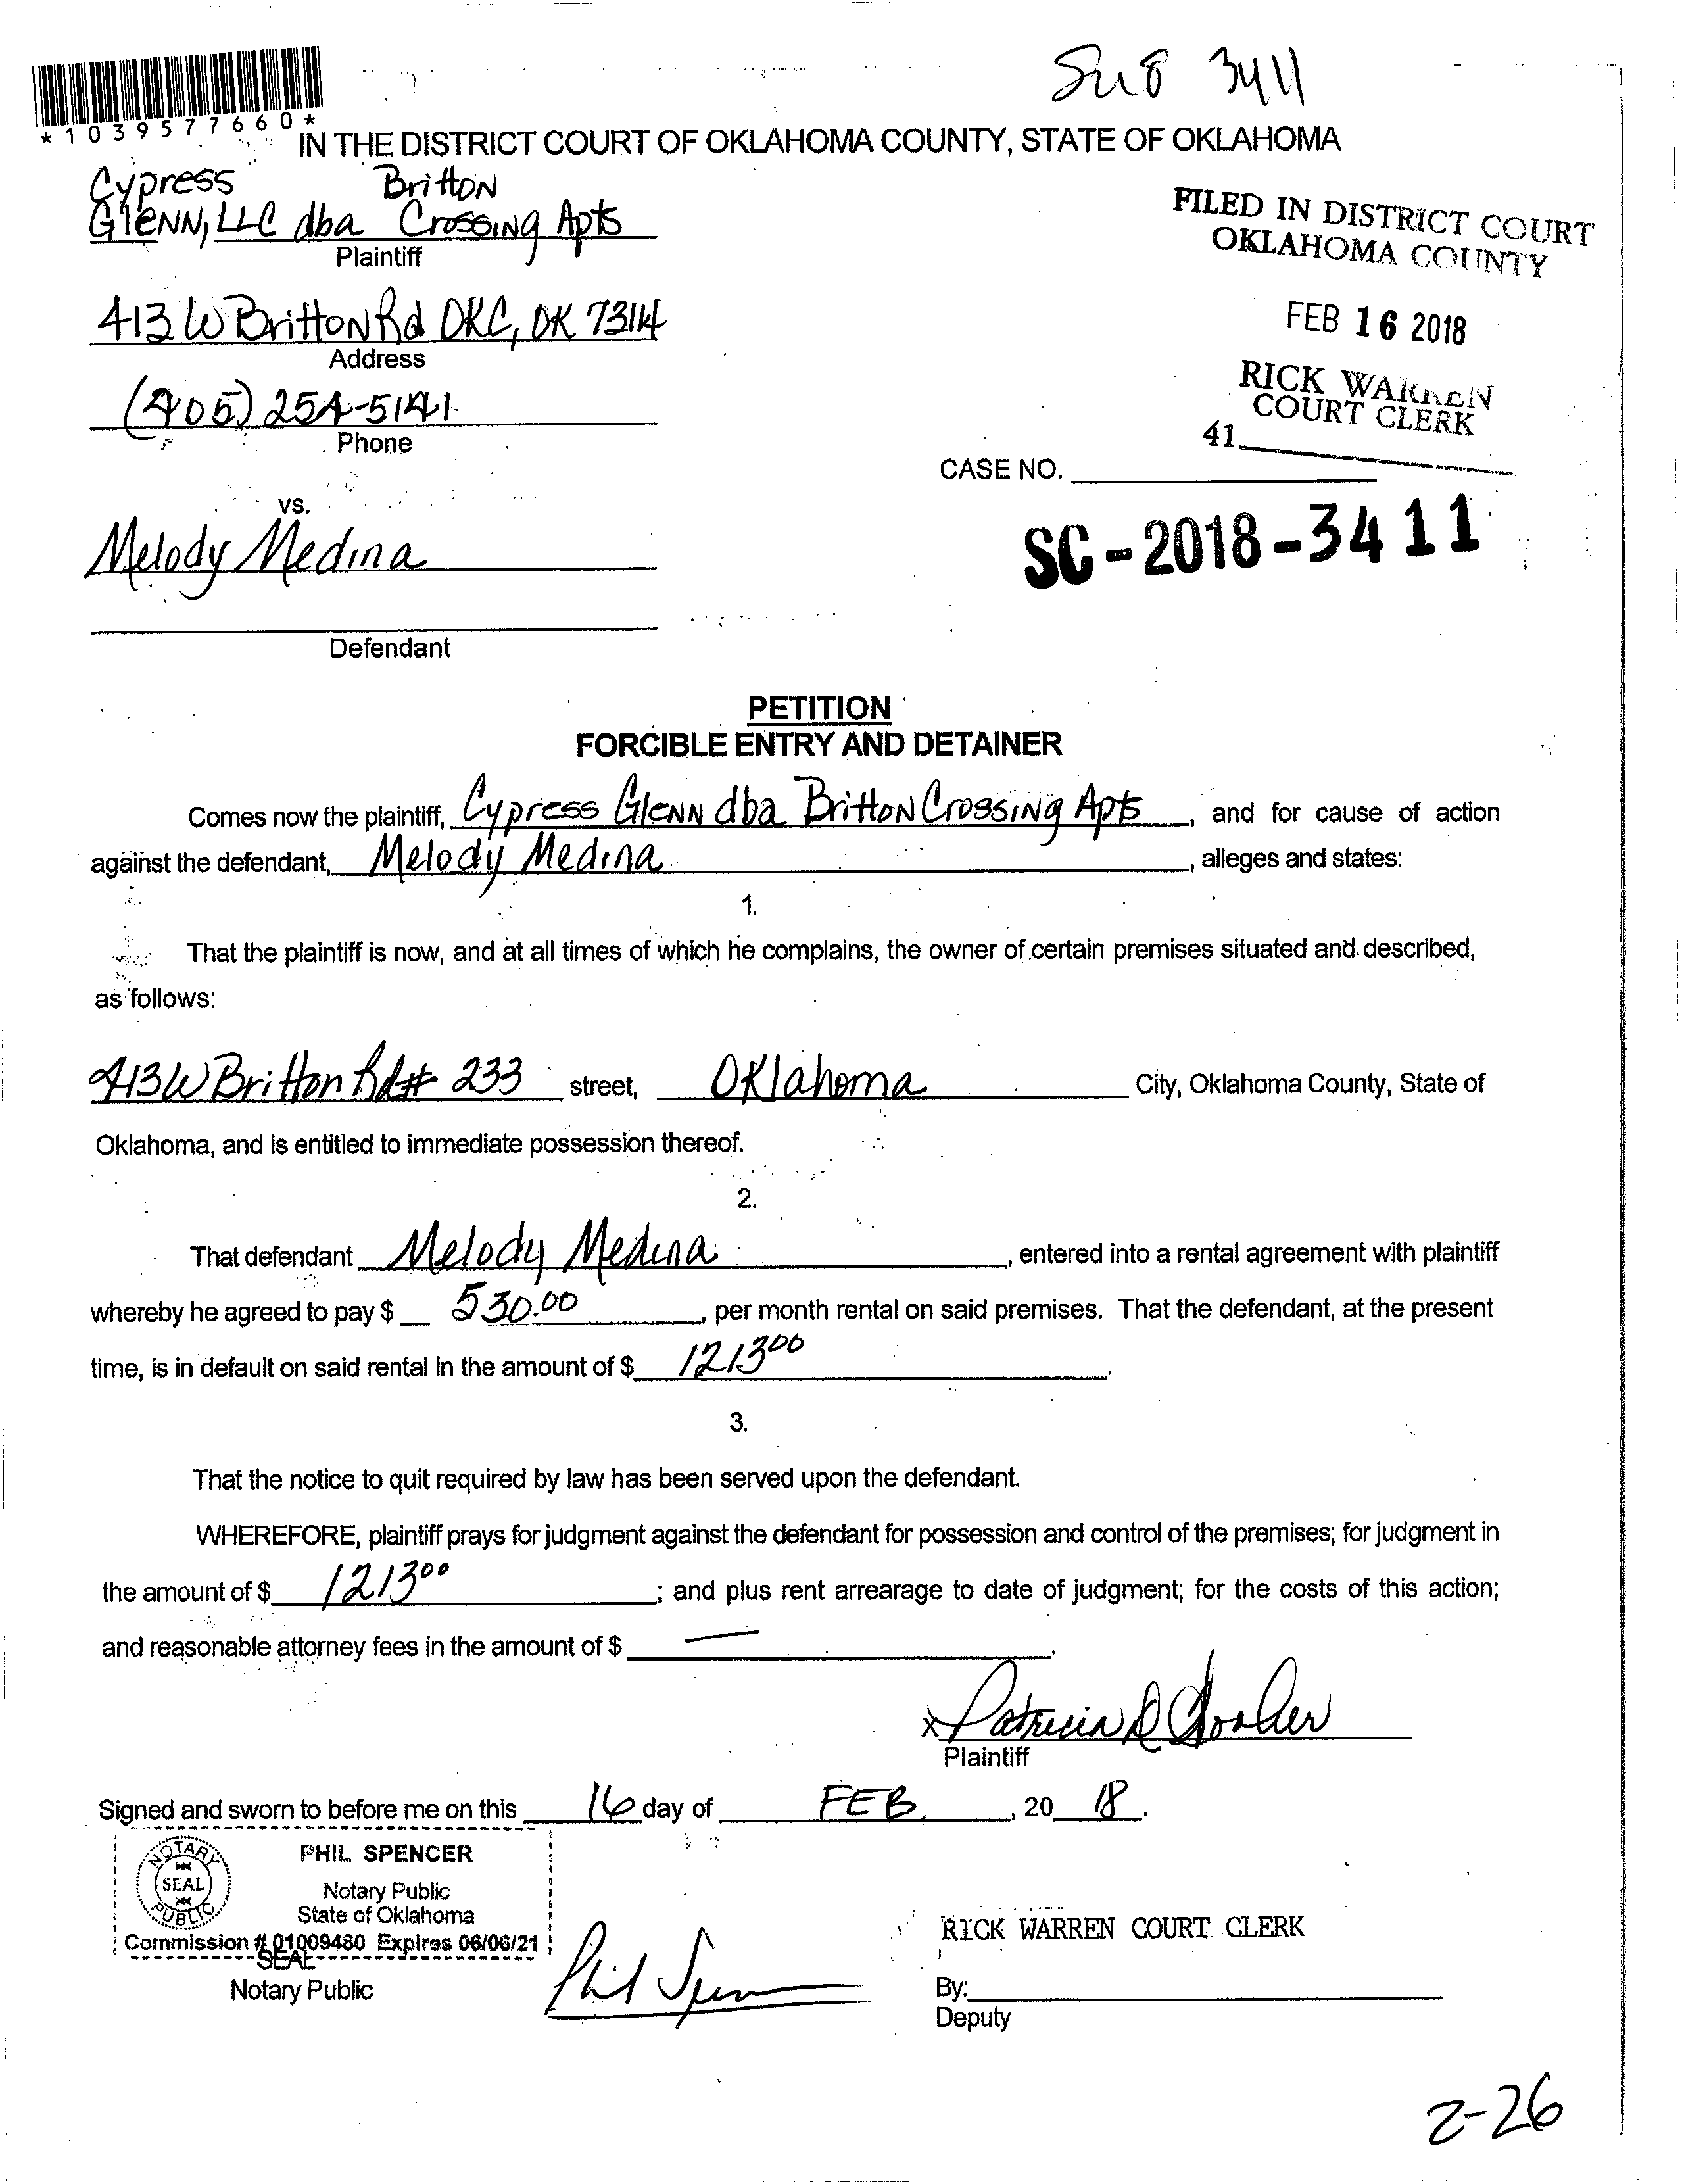 3411
*1039577660*
IN THE DISTRICT COURT OF OKLAHOMA COUNTY, STATE OF OKLAHOMA
Cypress Britton
Glenn, LLC dba Crossing Apts
Plaintiff
FILED IN DISTRICT COURT
OKLAHOMA COUNTY
413 W Britton Rd OKC, OK 73114
Address
FEB 16 2018
(405) 254-5141
Phone
RICK WARREN
COURT CLERK
41
CASE NO.
vs.
SC-2018-3411
Melody Medina
Defendant
PETITION
FORCIBLE ENTRY AND DETAINER
Comes now the plaintiff, Cypress Glenn dba Britton Crossing Apts, and for cause of action
against the defendant, Melody Medina, alleges and states:
1.
That the plaintiff is now, and at all times of which he complains, the owner of certain premises situated and described,
as follows:
413 W Britton Rd # 233 street, Oklahoma City, Oklahoma County, State of
Oklahoma, and is entitled to immediate possession thereof.
2.
That defendant Melody Medina, entered into a rental agreement with plaintiff
whereby he agreed to pay $ 530.00, per month rental on said premises. That the defendant, at the present
time, is in default on said rental in the amount of $ 1213 00.
3.
That the notice to quit required by law has been served upon the defendant.
WHEREFORE, plaintiff prays for judgment against the defendant for possession and control of the premises; for judgment in
the amount of $ 1213 00; and plus rent arrearage to date of judgment; for the costs of this action;
and reasonable attorney fees in the amount of $ —.
x Patricia D
Plaintiff
Signed and sworn to before me on this 16 day of FEB., 20 18.
NOTARY SEAL PUBLIC
PHIL SPENCER
Notary Public
State of Oklahoma
Commission # 01009480 Expires 06/06/21
SEAL
Notary Public
Phil Spencer
RICK WARREN COURT CLERK
By:
Deputy
2-26